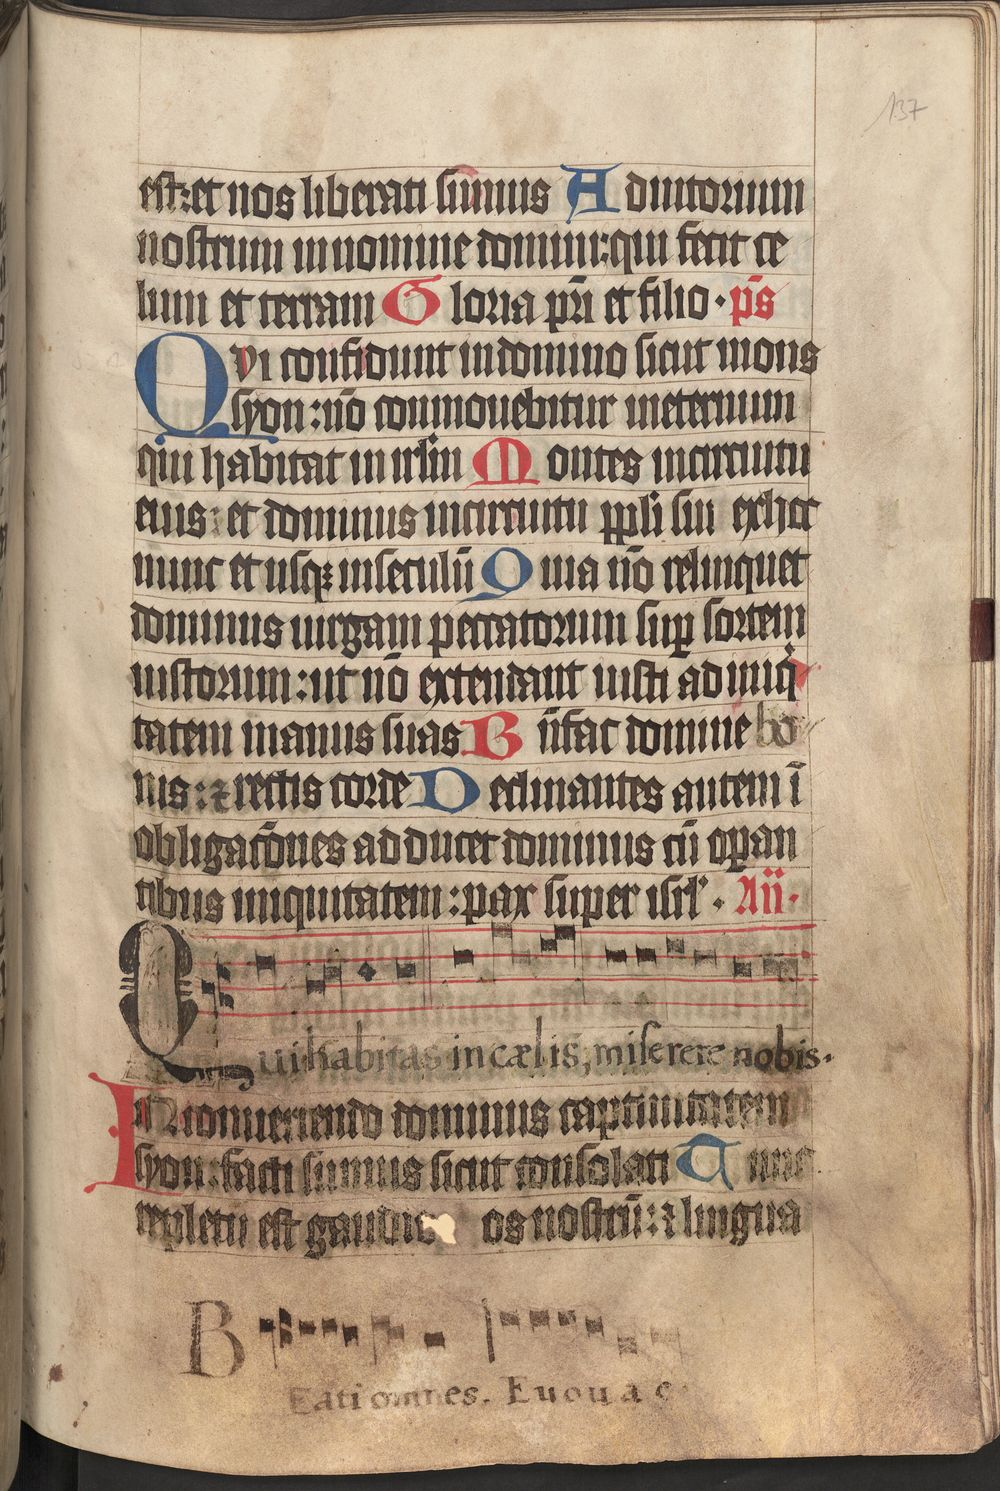 137
est: et nos liberati sumus Adiutorium
nostrum in nomine domini: qui fecit ce
lum et terram Gloria pr̄i et filio · p̄s
QVi confidunt in domino sicut mons
syon: nō commouebitur in eternum
qui habitat in irl̄m Montes in circuitu
eius: et dominus in circuitu ppl̄i sui ex hoc
nunc et usqꝫ in seculū Quia nō relinquet
dominus uirgam peccatorum suꝑ sortem
iustorum: ut nō extendant iusti ad iniq̇
tatem manus suas Bn̄fac domine bo
nis: ⁊ rectis corde Declinantes autem ī
obligacōnes adducet dominus cū oꝑan
tibus iniquitatem: pax super isrl̄ · An̄·
Qui habitas in cælis, miserere nobis.
IN conuertendo dominus captiuitatem
syon: facti sumus sicut consolati Tunc
repletū est gaudio os nostrū: ⁊ lingua
Beati omnes. Euouae